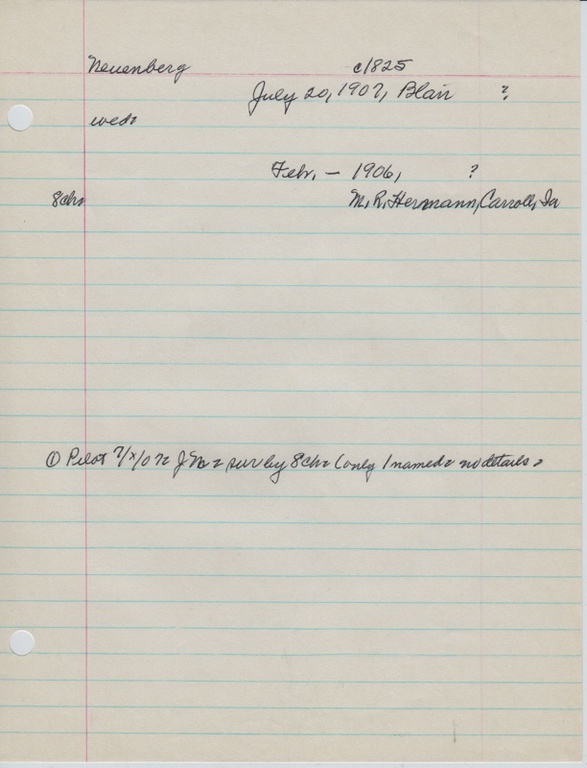 Neuenberg c1825
July 20, 1907, Blair ?
wed:
Febr. - 1906, ?
8chn M. R. Hermann, Carroll, Ia
① Pilot 7/x/07: J N: surv by 8ch: (only 1 named: no details.